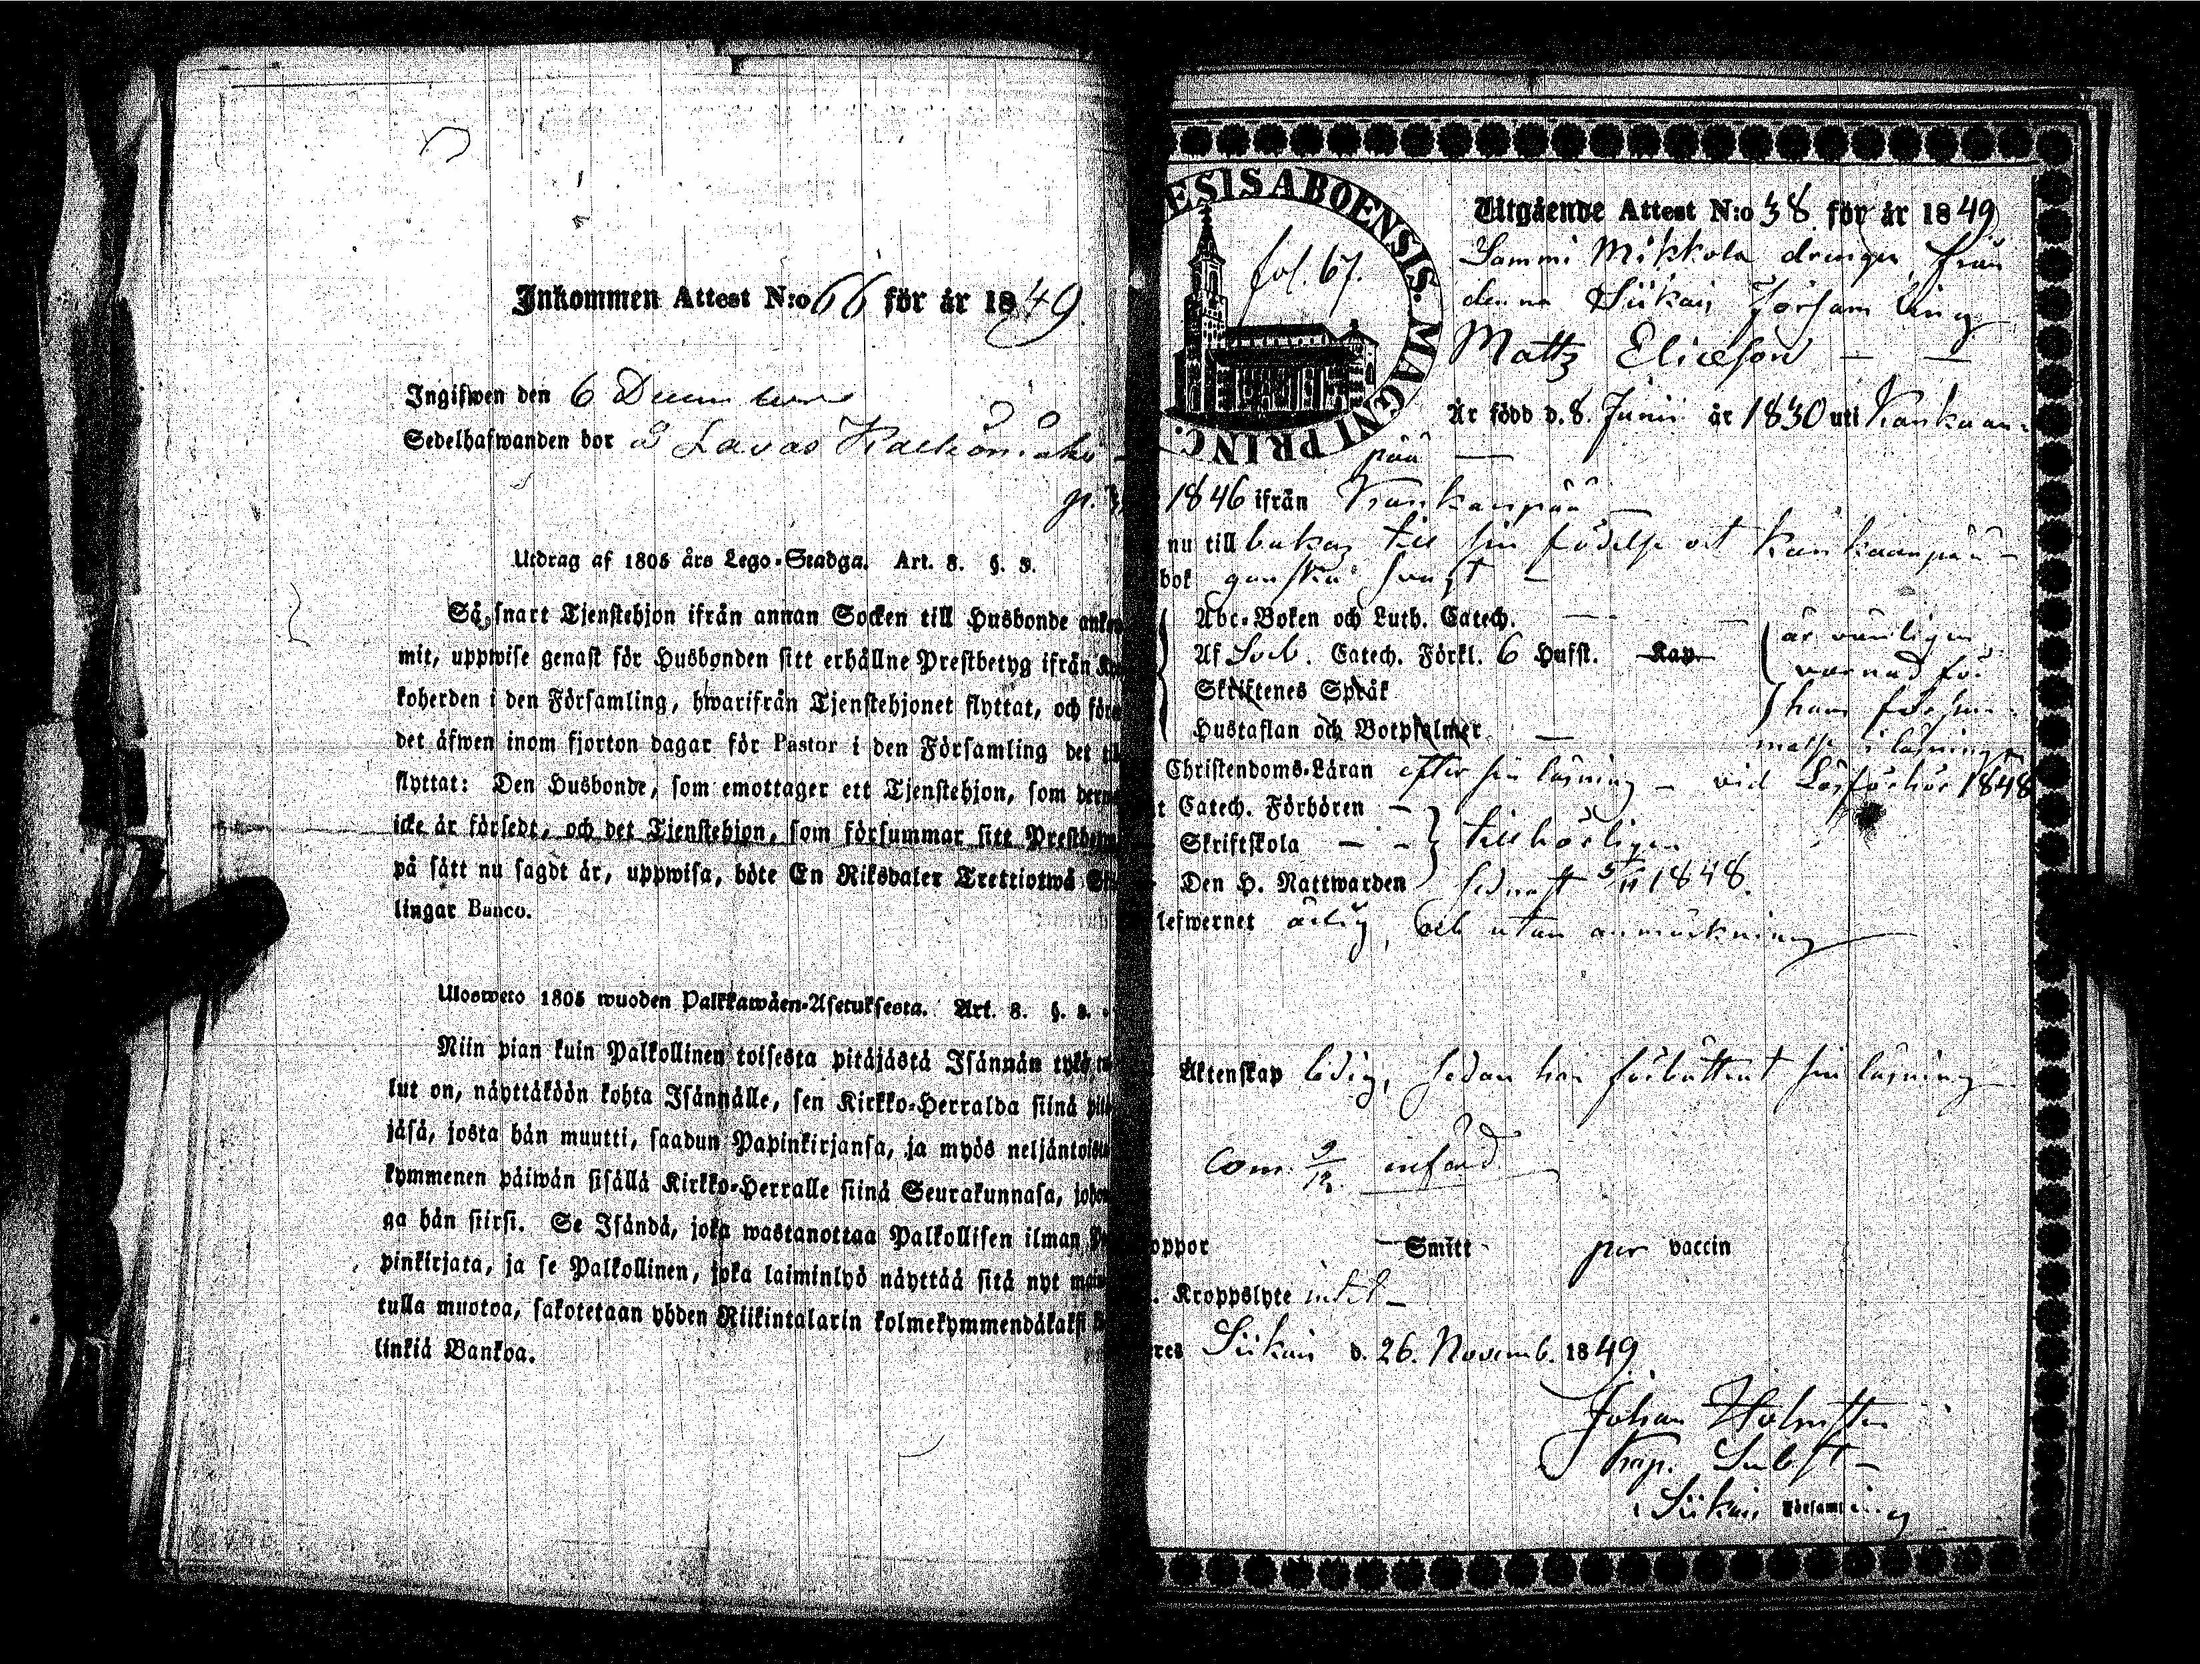 Inkommen Attest N:o 66 för år 1849.
Ingifwen den 6 December
Sedelhafwanden bor å Lavas
Utdrag af 1805 års Lego-Stadga. Art. 8. §. 3.
Så snart Tjenstehjon ifrån annan Socken till Husbonde
mit, uppwise genast för Husbonden sitt erhållne Prestbetyg ifrån
koherden i den Församling, hwarifrån Tjenstehjonet flyttat, och
det äfwen inom fjorton dagar för Pastor i den Församling det
flyttat: Den Husbonde, som emottager ett Tjenstehjon, som
icke är försedt, och det Tjenstehjon, som försummar sitt
på sätt nu sagdt är, uppwisa, böte En Riksdaler Trettiotwå
lingar Banco.
Uloswето 1805 wuoden Palkkawäen-Asetuksesta. Art. 8. §. 3.
Niin pian kuin Palkollinen toisesta pitäjästä Isännän tykö
lut on, näyttäköön kohta Isännälle, sen Kirkko-Herralda siinä
jäsä, josta hän muutti, saadun Papinkirjansa, ja myös
kymmenen päiwän sisällä Kirkko-Herralle siinä Seurakunnasa,
ga hän siirsi. Se Isändä, joka wastanottaa Palkollisen ilman
pinkirjata, ja se Palkollinen, joka laiminlyö näyttää sitä nyt
tulla muotoa, sakotetaan yhden Riikintalarin kolmekymmendäkaksi
linkiä Bankoa.
ESIS ABOENSIS. MAGNI PRINC.
fol. 67.
Utgående Attest N:o 38 för år 1849
Sammi Mikkola drengen från
denna Siikais Församling
Matts Ericsson
Är född d. 8. Junii år 1830 uti Kankaan-
pää
1846 ifrån Kankanpää
nu till bakas till sin födelse ort Kankaanpää
bok ganska svagt
Abc-Boken och Luth. Catech.
Af Sveb. Catech. Förkl. 6 Hufst. Kap
är vänligen
varnad för
Skriftenes Språk
hans försum-
Hustaflan och Botpsalmer
melse i läsning
Christendoms-Läran efter sin läsning vid Läsförhör 1848
Catech. Förhören
Skriftskola tillhörligen
Den H. Nattwarden sednast 5/11 1848.
lefwernet ärlig, och utan anmärkning
Äktenskap ledig, sedan han förbättrat sin läsning
com. 9/12 införd
oppor Smitt per vaccin
Kroppslyte intet
Siikais d. 26. Novemb. 1849
Johan Holmsten
Kap. Subst
Siikais Församling